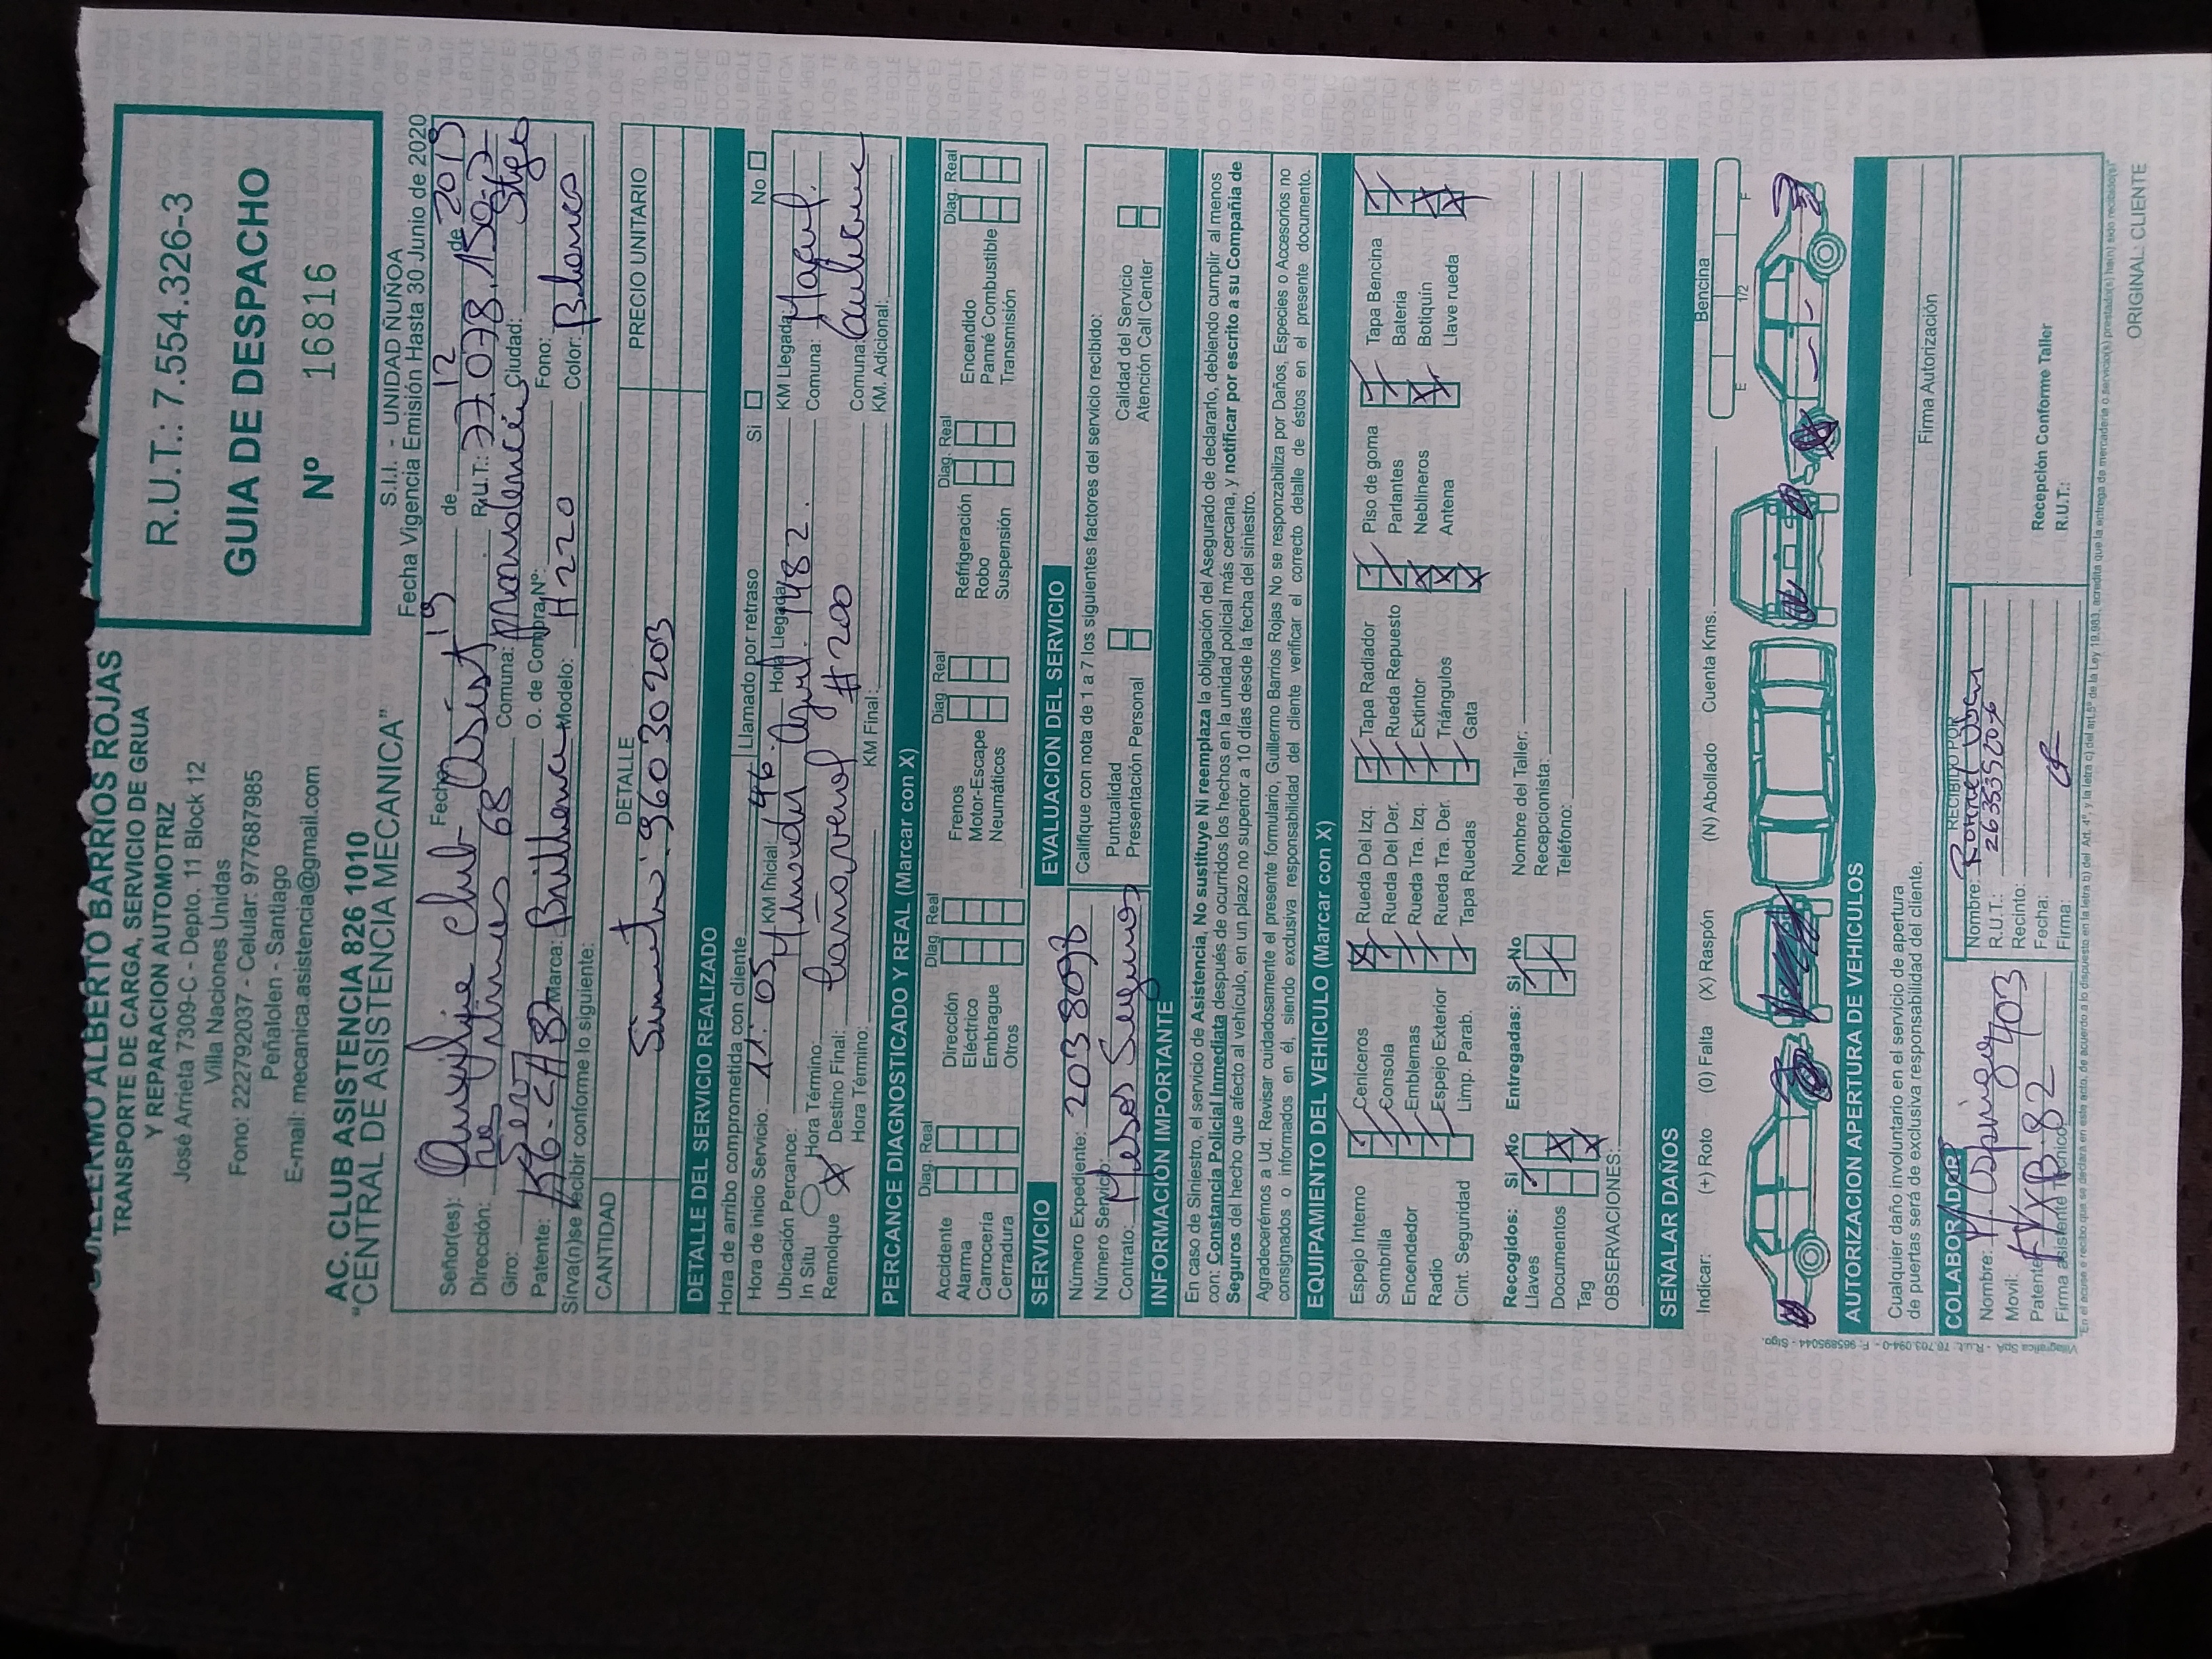 GUILLERMO ALBERTO BARRIOS ROJAS
TRANSPORTE DE CARGA, SERVICIO DE GRUA
Y REPARACION AUTOMOTRIZ
José Arrieta 7309-C - Depto. 11 Block 12
Villa Naciones Unidas
Fono: 2227792037 - Celular: 9776887985
Peñalolen - Santiago
E-mail: mecanica.asistencia@gmail.com
AC. CLUB ASISTENCIA 826 1010
"CENTRAL DE ASISTENCIA MECANICA"
R.U.T.: 7.554.326-3
GUIA DE DESPACHO
Nº 16816
S.I.I. - UNIDAD ÑUÑOA
Fecha Vigencia Emisión Hasta 30 Junio de 2020
Fecha 19 de 12 de 2019
Señor(es): Club Asist R.U.T.: 77.078.150-7
Dirección: 68 Comuna: providencia Ciudad: Stgo
Giro: Serv O. de Compra Nº: Fono:
Patente: Marca: Brilliance Modelo: H220 Color: Blanco
Sirva(n)se recibir conforme lo siguiente:
CANTIDAD DETALLE PRECIO UNITARIO
Siniestro: 9603020
DETALLE DEL SERVICIO REALIZADO
Hora de arribo comprometida con cliente Llamado por retraso Si No
Hora de inicio Servicio: 11:05 KM Inicial: 46. Hora Llegada: KM Llegada:
Ubicación Percance: 1482. Comuna: Macul.
In Situ Hora Término:
Remolque X Destino Final: #200 Comuna:
Hora Término: KM Final: KM. Adicional:
PERCANCE DIAGNOSTICADO Y REAL (Marcar con X)
Diag. Real Diag. Real Diag. Real Diag. Real Diag. Real
Accidente Dirección Frenos Refrigeración Encendido
Alarma Eléctrico Motor-Escape Robo Panné Combustible
Carrocería Embrague Neumáticos Suspensión Transmisión
Cerradura Otros
SERVICIO
Número Expediente: 2038098
Número Servicio:
Contrato: Seguros
EVALUACION DEL SERVICIO
Califique con nota de 1 a 7 los siguientes factores del servicio recibido:
Puntualidad Calidad del Servicio
Presentación Personal Atención Call Center
INFORMACIÓN IMPORTANTE
En caso de Siniestro, el servicio de Asistencia, No sustituye Ni reemplaza la obligación del Asegurado de declararlo, debiendo cumplir al menos
con: Constancia Policial Inmediata después de ocurridos los hechos en la unidad policial más cercana, y notificar por escrito a su Compañía de
Seguros del hecho que afecto al vehículo, en un plazo no superior a 10 días desde la fecha del siniestro.
Agradecerémos a Ud. Revisar cuidadosamente el presente formulario, Guillermo Barrios Rojas No se responzabiliza por Daños, Especies o Accesorios no
consignados o informados en él, siendo exclusiva responsabilidad del cliente verificar el correcto detalle de éstos en el presente documento.
EQUIPAMIENTO DEL VEHICULO (Marcar con X)
Espejo Interno Ceniceros Rueda Del Izq. Tapa Radiador Piso de goma Tapa Bencina
Sombrilla Consola Rueda Del Der. Rueda Repuesto Parlantes Batería
Encendedor Emblemas Rueda Tra. Izq. Extintor Neblineros Botiquín
Radio Espejo Exterior Rueda Tra. Der. Triángulos Antena Llave rueda
Cint. Seguridad Limp. Parab. Tapa Ruedas Gata
Recogidos: Si No Entregadas: Si No Nombre del Taller:
Llaves Recepcionista:
Documentos Teléfono:
Tag
OBSERVACIONES:
SEÑALAR DAÑOS
Indicar: (+) Roto (0) Falta (X) Raspón (N) Abollado Cuenta Kms. Bencina
E 1/2 F
AUTORIZACION APERTURA DE VEHICULOS
Cualquier daño involuntario en el servicio de apertura
de puertas será de exclusiva responsabilidad del cliente.
Firma Autorización
COLABORADOR
Nombre:
Movil: 0403
Patente:
Firma asistente Técnico:
RECIBIDO POR
Nombre:
R.U.T.: 26353520-6
Recinto:
Fecha:
Firma:
Recepción Conforme Taller
R.U.T.:
"En el acuse o recibo que se declara en este acto, de acuerdo a lo dispuesto en la letra b) del Art. 4º, y la letra c) del art. 5º de la Ley 19.983, acredita que la entrega de mercadería o servicio(s) prestado(s) ha(n) sido recibido(s)"
ORIGINAL: CLIENTE
Villagrafica SpA - R.u.t. 76.703.094-0 - F: 965895044 - Stgo.